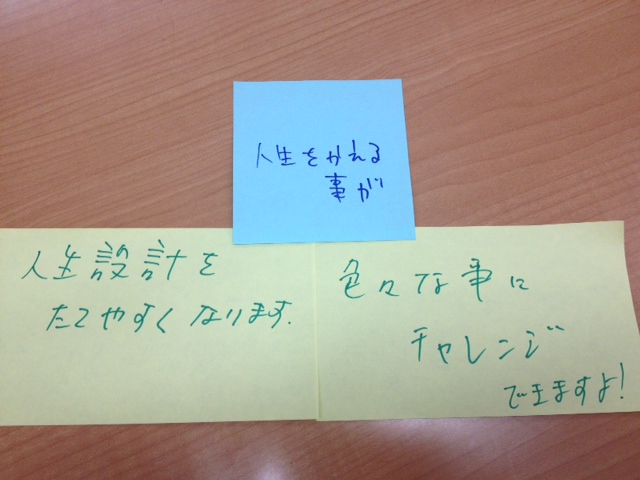 人生をかえる
事が
人生設計を
たてやすくなります.
色々な事に
チャレンジ
できますよ!